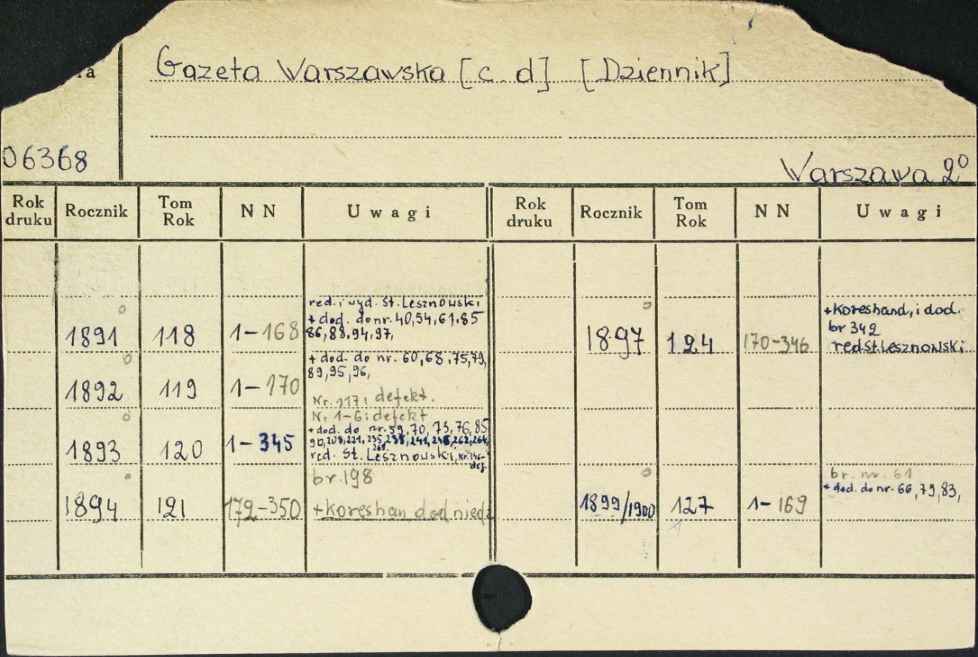 Gazeta Warszawska [c. d] [Dziennik]
06368
Warszawa 2°
Rok druku Rocznik Tom Rok NN Uwagi Rok druku Rocznik Tom Rok NN Uwagi
red. i wyd. St. Lesznowski
+ dod. do nr. 40,54,61.85
1891 118 1-168 86,88,94,97,
+ dod. do nr. 60,68,75,79,
89,95,96,
1892 119 1-170 Nr. 117: defekt.
Nr 1-6: defekt
+ dod. do nr. 59,70,73,76,85
1893 120 1-345
red. St. Lesznowski,
br. 198
1894 121 172-350 +koreshan dod niedz
+Koreshand, i dod.
br 342
1897 124 170-346 red St. Lesznowski
br. nr. 61
+ dod. do nr. 66,79,83,
1899/1900 127 1-169